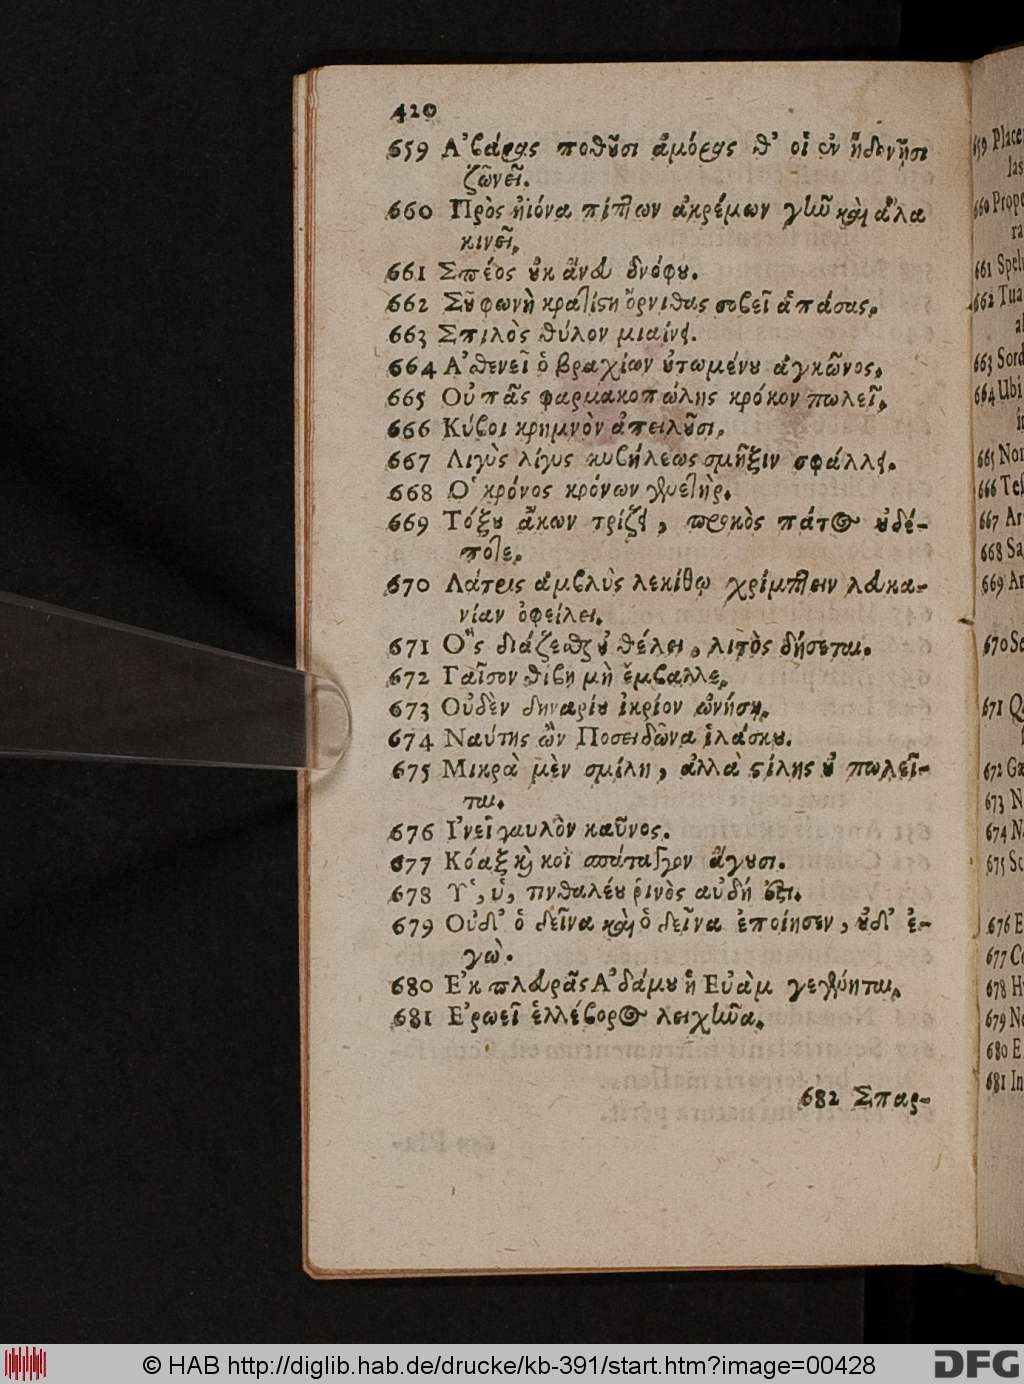 420
659 Ἀβάρας ποθοῦσι ἀμόρας θ' οἱ ἐν
ζῶνει.
660 Πρὸς ἠϊόνα πίπτων ἀκρέμων γλῶ καὶ ἅλα
κινεῖ.
661 Σπέος οὐκ ἄνευ δνόφου.
662 Σῦ φωνὴ κρατίστη ὄρνιθας σοβεῖ ἁπάσας.
663 Σπιλὸς θύλον μιαίνει.
664 Ἀσθενεῖ ὁ βραχίων οὐτωμένου ἀγκῶνος.
665 Οὐ πᾶς φαρμακοπώλης κρόκον πωλεῖ.
666 Κύβοι κρημνὸν ἀπειλοῦσι.
667 Λιγὺς λίγυς κυβήλεως σμῆξιν σφάλλει.
668 Ὁ κρόνος κρόνων γευετὴρ.
669 Τόξου ἄκων τρίζει, προκὸς πάτος οὐδέ-
ποτε.
670 Λάτρις ἀμβλὺς λεκίθῳ χρίμπτειν λευκα-
νίαν ὀφείλει.
671 Ὃς διάζεσθαι οὐ θέλει, λιτὸς δήσεται.
672 Γαῖσον θίβῃ μὴ ἔμβαλλε.
673 Οὐδὲν δηναρίου ἰκρίον ὠνήσῃ.
674 Ναύτης ὢν Ποσειδῶνα ἱλάσκου.
675 Μικρὰ μὲν σμίλη, ἀλλὰ στίλης οὐ πωλεῖ-
ται.
676 Ἰνεῖ γαυλὸν καῦνος.
677 Κόαξ καὶ κοῒ σπάταγγον ἄγουσι.
678 Ὑ, ὑ, πνθαλέου ῥινὸς αὐδή ἐστι.
679 Οὐδ' ὁ δεῖνα καὶ ὁ δεῖνα ἐποίησεν, οὐδ' ἐ-
γὼ.
680 Ἐκ πλευρᾶς Ἀδάμου ἡ Εὐὰμ γεγένηται.
681 Ἐρωεῖ ἑλλέβορος λειχῶα.
682 Σπαρ-
659 Place
las
660 Prope
ra
661 Spel
662 Tua
al
663 Sord
664 Ubi
in
665 Non
666 Tes
667 Ar
668 Sa
669 Ar
670 Sc
671 Q
672 Gæ
673 N
674 N
675 Sc
676 E
677 C
678 H
679 N
680 E
681 In
© HAB http://diglib.hab.de/drucke/kb-391/start.htm?image=00428
DFG